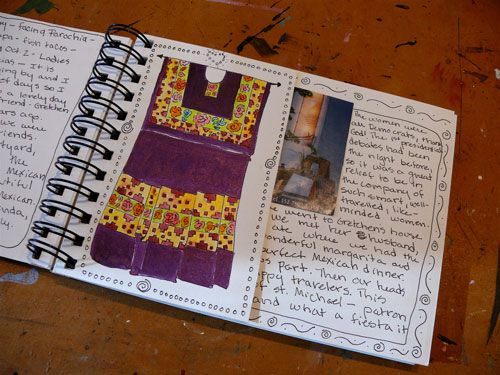 y - facing Parochia -
pa - fish tacos -
Oct 2 - Ladies
as - It is
ing by and I
of days so I
a lonely day
friend - Gretchen
ars ago.
we were
iends.
tyard,
the
Mexican
utiful
Mexican.
onda,
ly.
The women were
all Democrats, thank
God! The 1st presidential
debates had been
the night before
so it was a great
relief to be in
the company of
such smart, well-
travelled, like-
minded women
went to Gretchens house
we met her husband,
ate when we had the
wonderful margarita and
perfect Mexican dinner.
Part. Then our heads
ppy travelers. This
of St. Michael - patron
and what a fiesta it